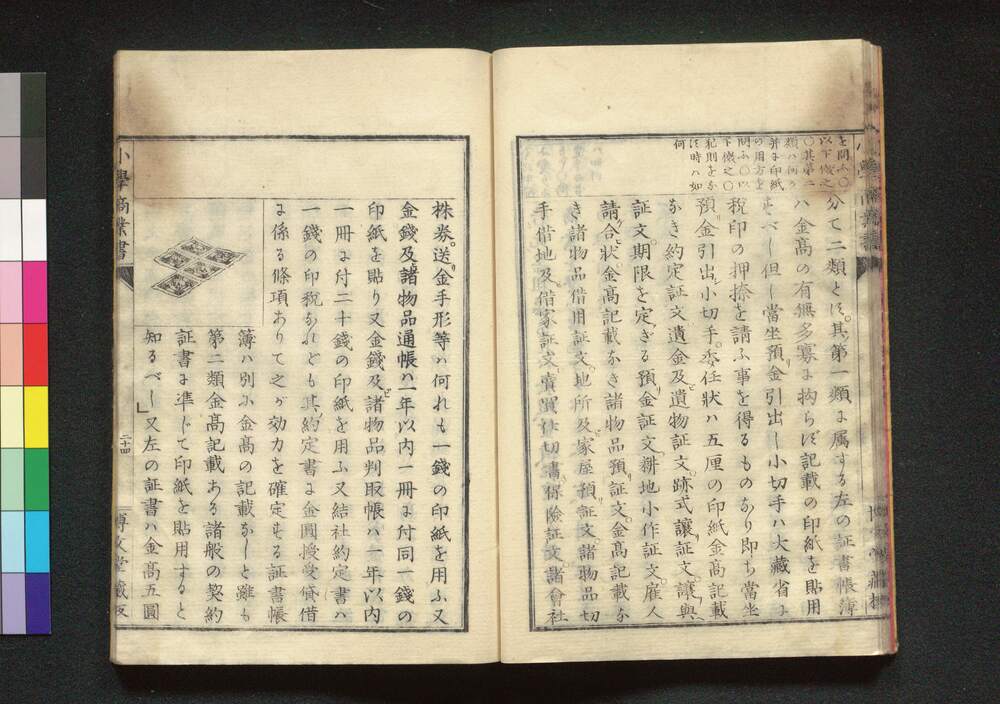 を問ふ〇
以下倣之
〇其第二
類ハ何ぞ
并に印紙
の用方を
問ふ〇以
下倣之〇
犯則をな
す時ハ如
何
分て二類とす。其第一類に属する左の証書帳簿
ハ金高の有無多寡に拘らず記載の印紙を貼用
すべし但し當坐預金引出し小切手ハ大藏省に
税印の押捺を請ふ事を得るものなり即ち當坐
預金引出小切手。委任狀ハ五厘の印紙金高記載
なき約定証文遺金及遺物証文。跡式讓証文。讓與
証文。期限を定ざる預金証文。耕地小作証文。雇人
請合狀。金高記載なき諸物品預証文。金高記載な
き諸物品借用証文。地所及家屋預証文諸物品切
手借地及借家証文。賣買仕切書保險証文。諸會社
株券。送金手形等ハ何れも一錢の印紙を用ふ又
金錢及諸物品通帳ハ一年以内一冊に付同一錢の
印紙を貼り又金錢及諸物品判取帳ハ一年以内
一冊に付二十錢の印紙を用ふ又結社約定書ハ
一錢の印税なれども其約定書に金圓授受貸借
に係る條項ありて之が効力を確定する証書帳
簿ハ別に金高の記載なしと雖も
第二類金高記載ある諸般の契約
証書に準じて印紙を貼用すると
知るべし」又左の証書ハ金高五圓
小學商業書
二十四
博文堂藏版